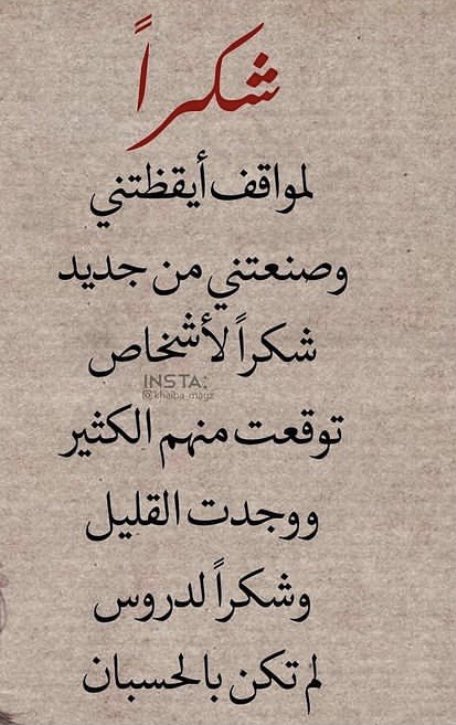 شكراً
لمواقف أيقظتني
وصنعتني من جديد
شكراً لأشخاص
INSTA:
@khaiba_magz
توقعت منهم الكثير
ووجدت القليل
وشكراً لدروس
لم تكن بالحسبان